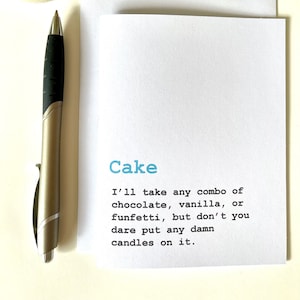 Cake
I'll take any combo of
chocolate, vanilla, or
funfetti, but don't you
dare put any damn
candles on it.